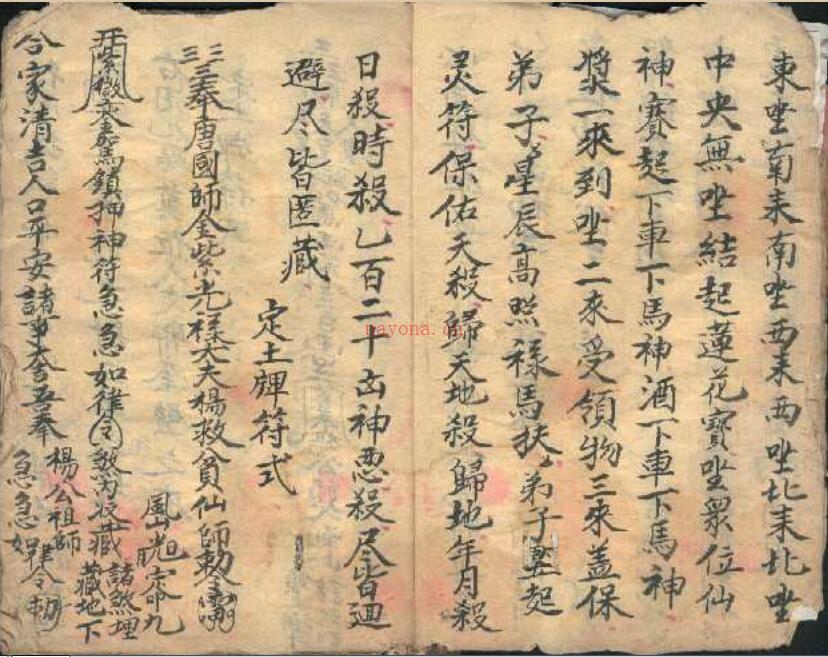 東坐南来南坐西来西坐北来北坐
中央無坐結起蓮花寶坐眾位仙
神賽起下車下馬神酒下車下馬神
漿一來到坐二來受領物三來蓋保
弟子星辰高照祿馬扶弟子竪起
灵符保佑天殺歸天地殺歸地年月殺
日殺時殺乙百二十凶神惡殺尽皆廻
避尽皆匿藏
定土牌符式
奉唐國師金紫光祿大夫楊救貧仙師勅令
紫微 鎖押神符急急如律令
諸煞埋藏地下
合家清吉人口平安諸事大吉奉
楊公祖師
急急如律令勅
nayona.cn